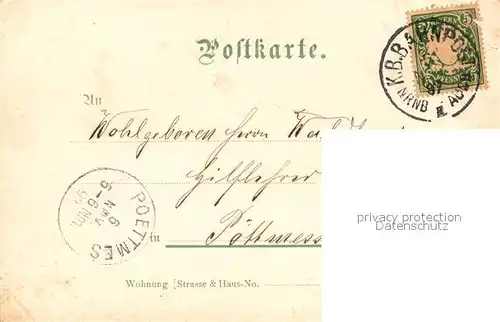 Postkarte.
BAYERN
5
PFENNIG
K.B.BAHNPOST
97
NRNB III AUGS
An
Wohlgeboren Herrn
Hilfslehrer
POETTMES
6 NOV
5-6 NM
in Pöttmess
privacy protection
Datenschutz
Wohnung [Strasse & Haus-No.